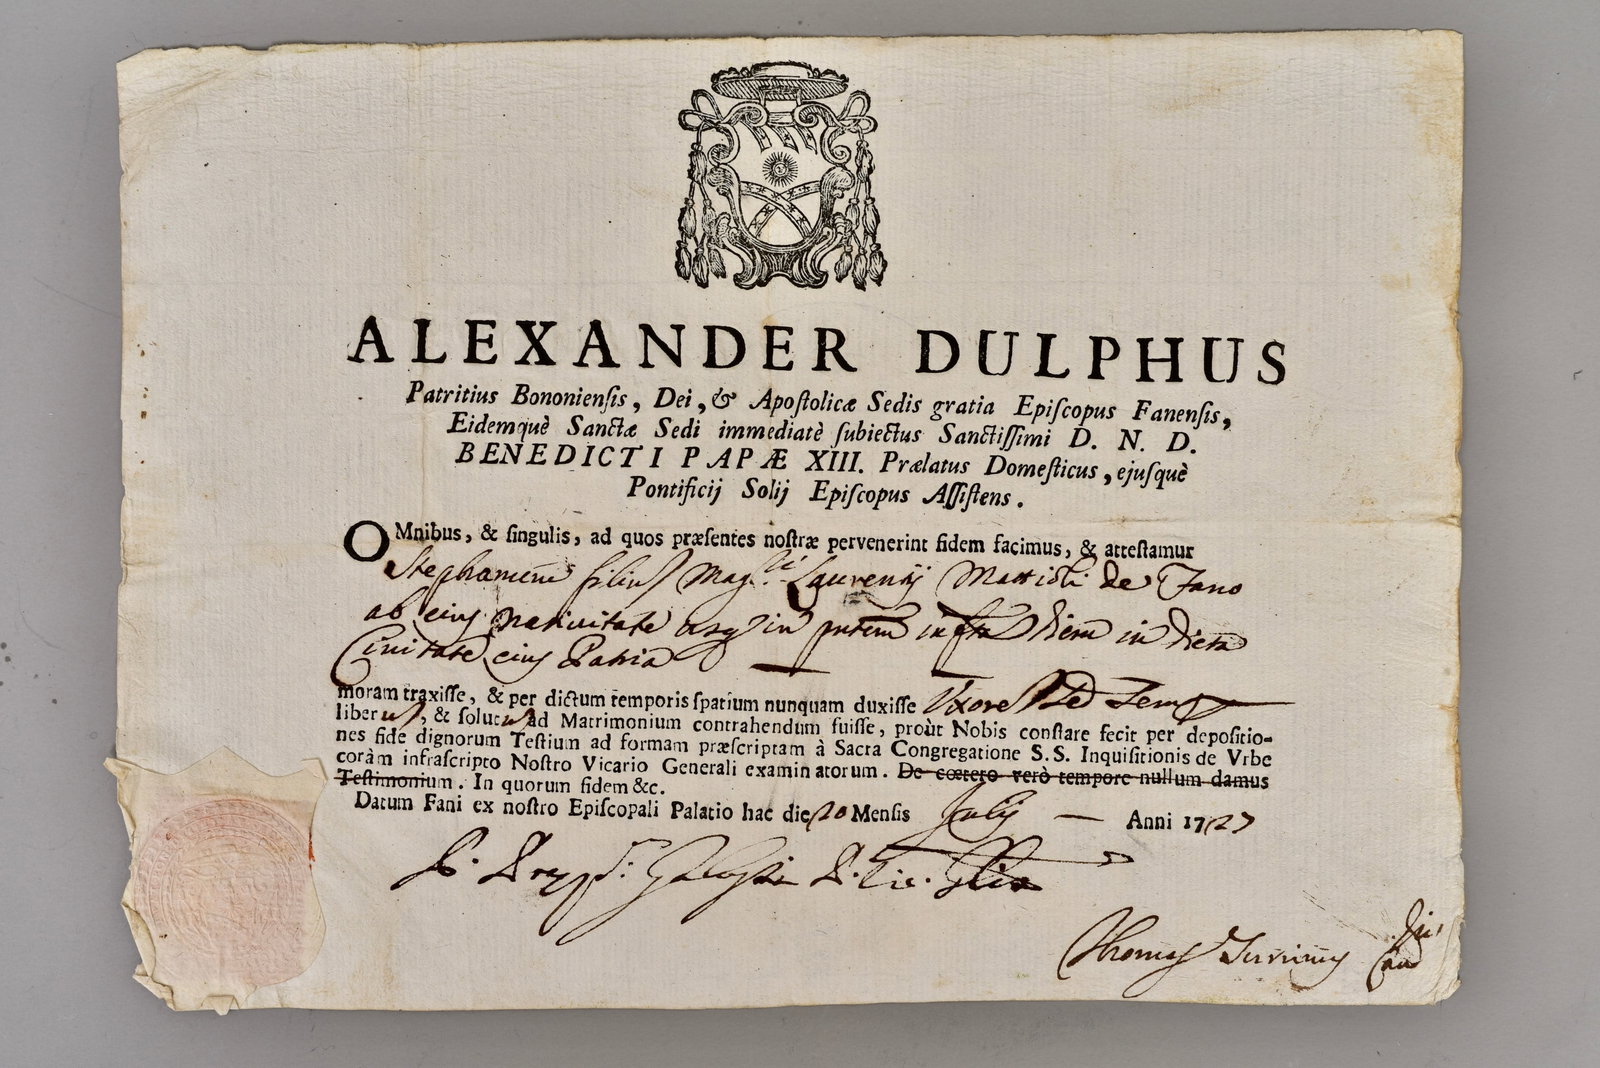 ALEXANDER DULPHUS
Patritius Bononiensis, Dei, & Apostolicæ Sedis gratia Episcopus Fanensis,
Eidemquè Sanctæ Sedi immediatè subiectus Sanctissimi D. N. D.
BENEDICTI PAPÆ XIII. Prælatus Domesticus, ejusquè
Pontificij Solij Episcopus Assistens.
OMnibus, & singulis, ad quos præsentes nostræ pervenerint fidem facimus, & attestamur
Stephanum filium Mag. Laurentij Mattioli de Fano
ab eius nativitate usq in diem in dicta
Civitate eius Patria
moram traxisse, & per dictum temporis spatium nunquam duxisse Uxorem sed semp
liberum, & solutum ad Matrimonium contrahendum fuisse, proùt Nobis constare fecit per depositio-
nes fide dignorum Testium ad formam præscriptam à Sacra Congregatione S.S. Inquisitionis de Vrbe
coràm infrascripto Nostro Vicario Generali examinatorum. De cœtero verò tempore nullum damus
Testimonium. In quorum fidem &c.
Datum Fani ex nostro Episcopali Palatio hac die 20 Mensis Julij — Anni 1727
Thomas